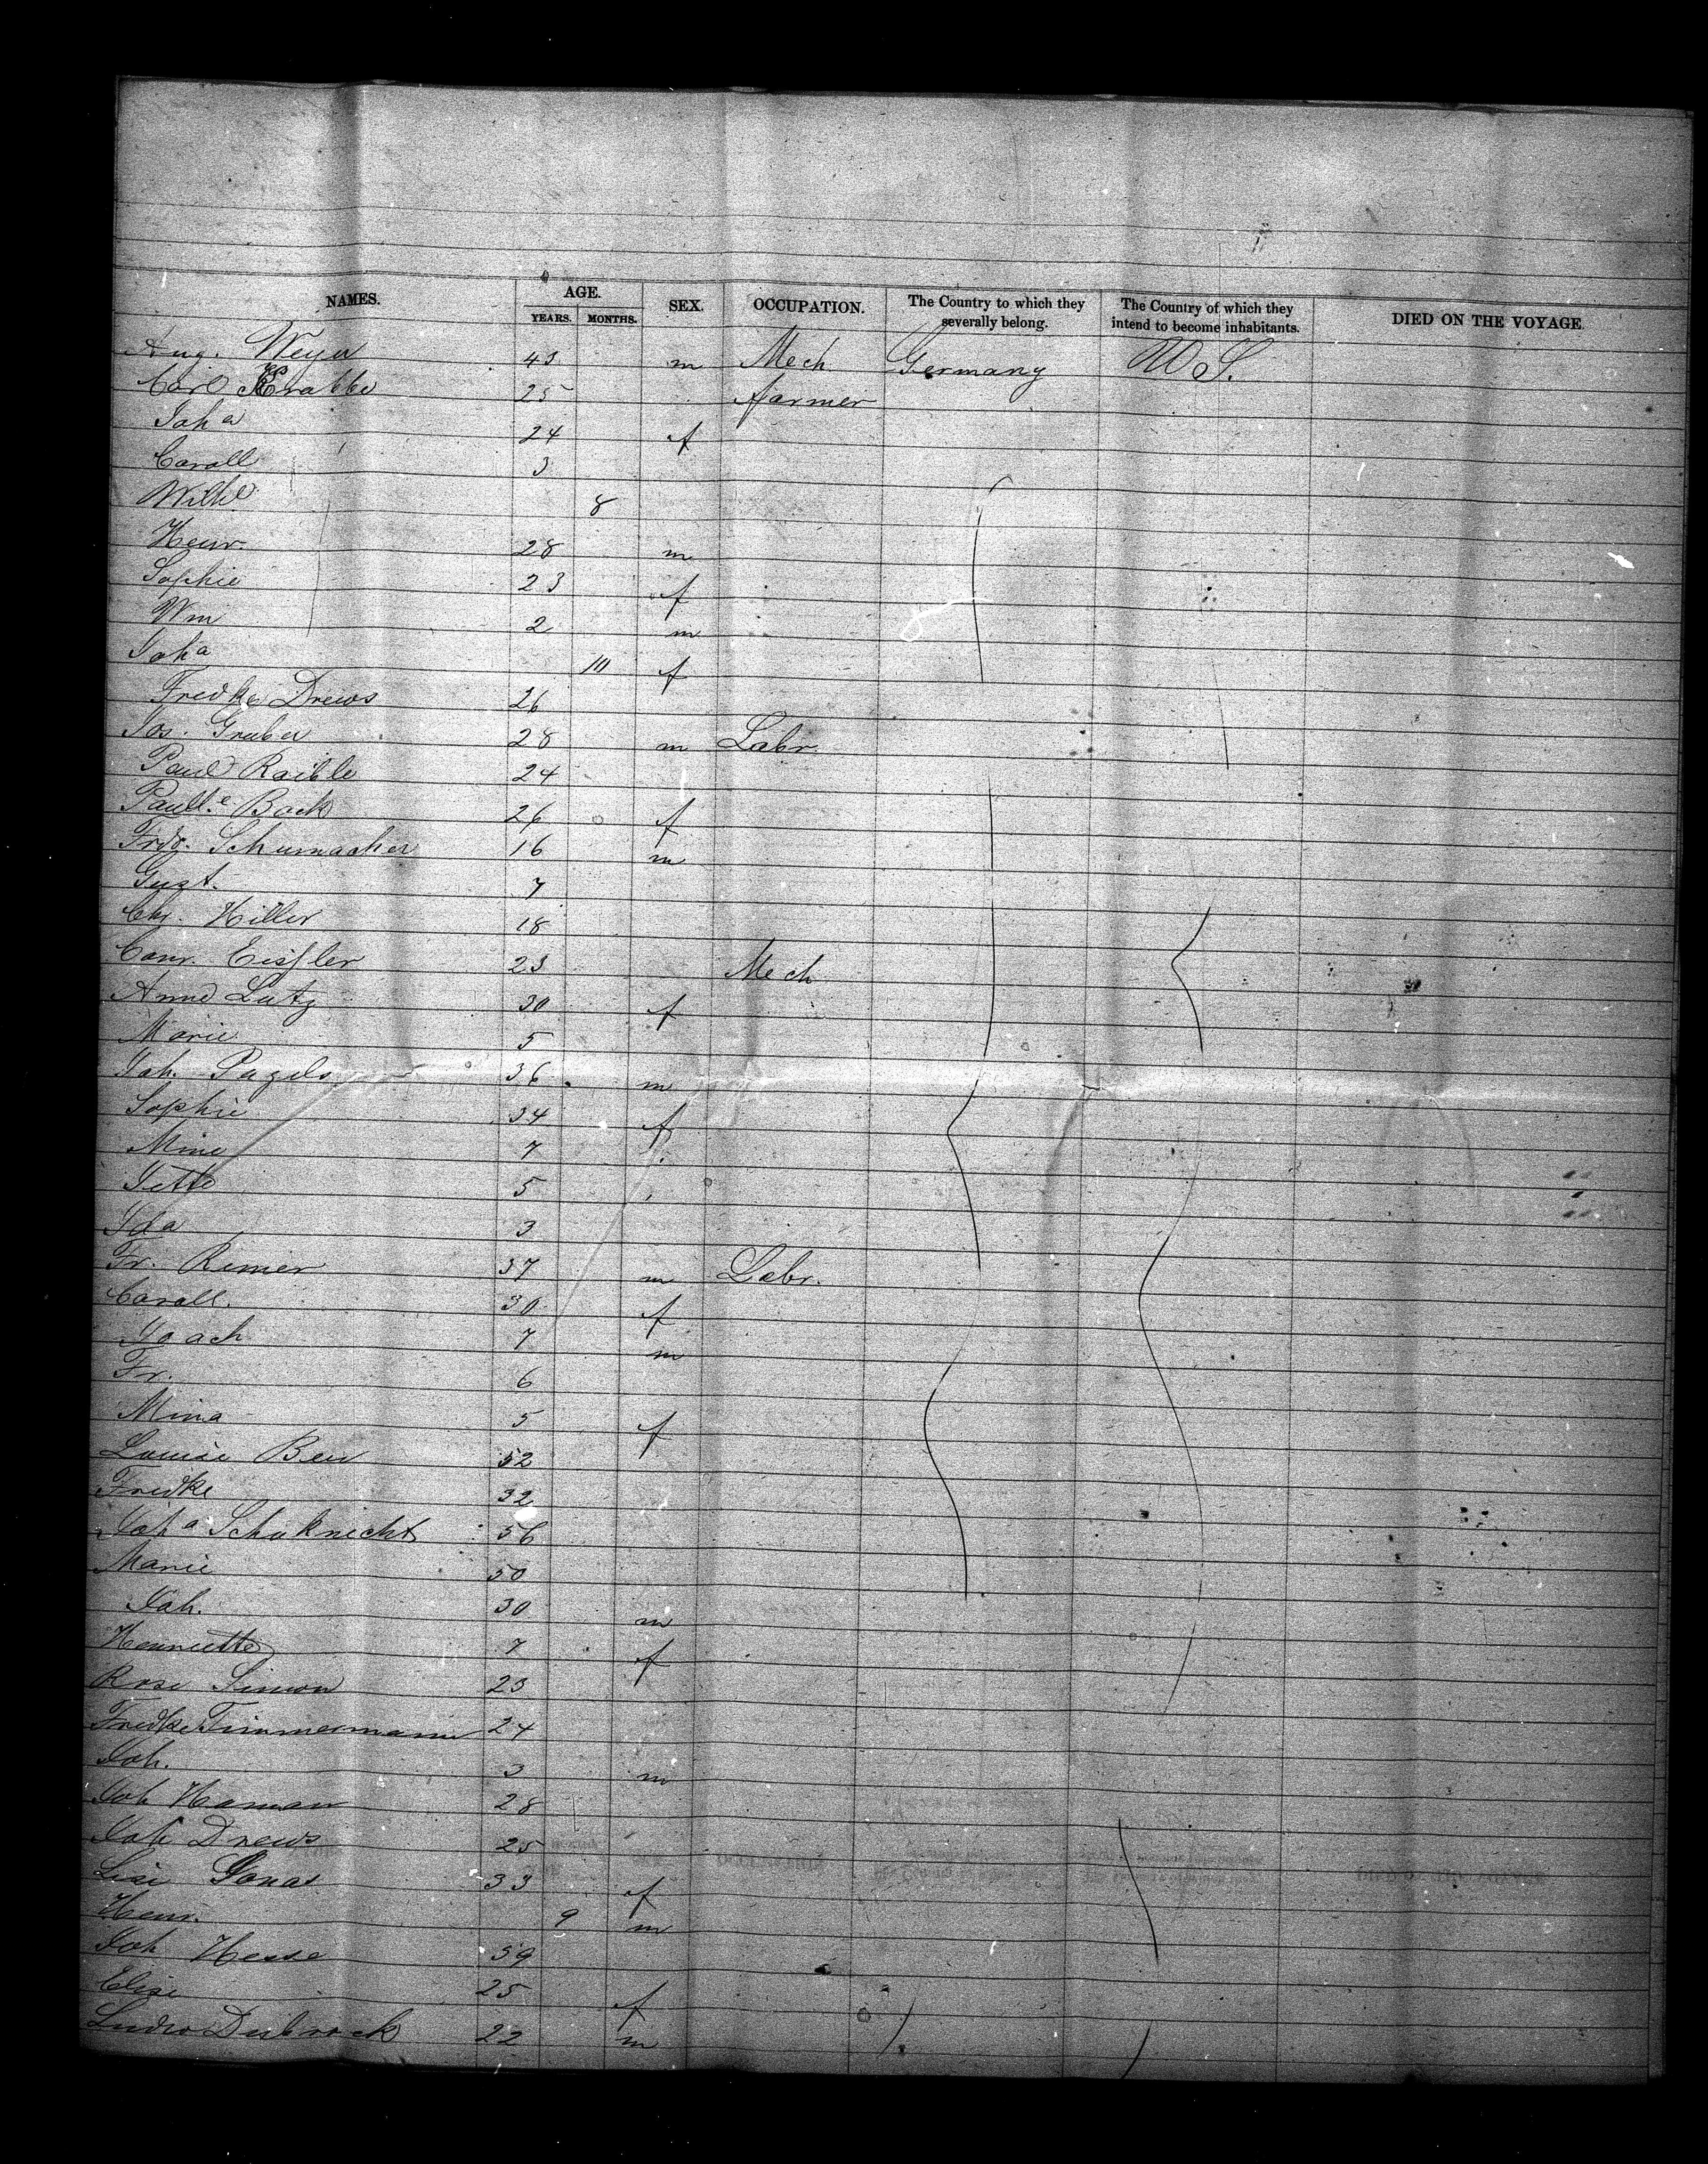 NAMES. AGE. SEX. OCCUPATION. The Country to which they severally belong. The Country of which they intend to become inhabitants. DIED ON THE VOYAGE.
YEARS. MONTHS.
Aug. Meyer 43 m Mech Germany U S.
Carl Krabbe 25 farmer
Joh a 24 f
Caroll 3
Wilhe 8
Henr. 28 m
Sophie 23 f
Wm 2 m
Joh a 10 f
Fredke Drews 26
Jos. Gruber 28 m Labr.
Paul Raible 24
Paull.e Bock 26 f
Frdr. Schumacher 16 m
Gust. 7
Chr. Hiller 18
Conr. Eissler 23 Mech
Anna Lutz 30 f
Marie 5
Joh. Pagels 36 m
Sophie 34 f
Mine 7
Jette 5
Ida 3
Fr. Rimer 37 m Labr.
Caroll. 30 f
Joach 7 m
Fr. 6
Mina 5 f
Louise Beu 52
Fredke 32
Joh a Schuknecht 56
Marie 50
Joh. 30 m
Henriette 7 f
Rosi Simon 23
Fredke Timmermann 24
Joh. 3 m
Joh Haman 28
Joh Drews 25
Lisi Jonas 33 f
Henr. 9 m
Joh Hesse 59
Elise 25 f
Ludw Disbrock 22 m